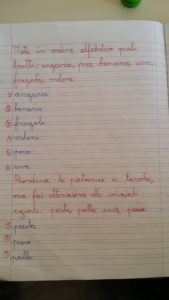 Metti in ordine alfabetico questi
frutti: anguria, pera, banana, uva,
fragola, melone
① anguria
② banana
③ fragola
④ melone
⑤ pera
⑥ uva
Riordina le pietanze a tavola,
ma fai attenzione alle iniziali
uguali: pasta, pollo, purè, pesce
① pasta
② pesce
③ pollo